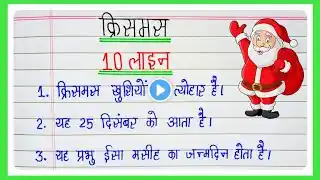 क्रिसमस
10 लाइन
1. क्रिसमस खुशियों त्योहार है।
2. यह 25 दिसंबर को आता है।
3. यह प्रभु ईसा मसीह का जन्मदिन होता है।